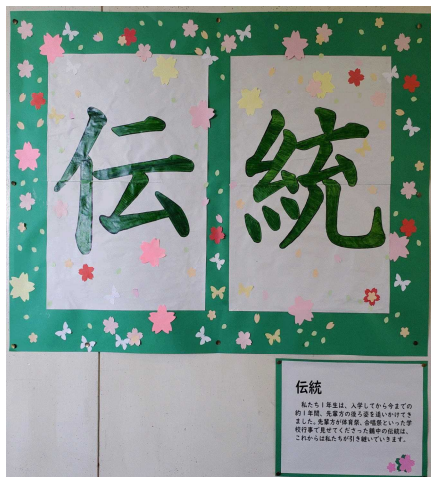 伝統
伝統
私たち1年生は、入学してから今までの
約1年間、先輩方の後ろ姿を追いかけてき
ました。先輩方が体育祭、合唱祭といった学
校行事で見せてくださった鶴中の伝統は、
これからは私たちが引き継いでいきます。